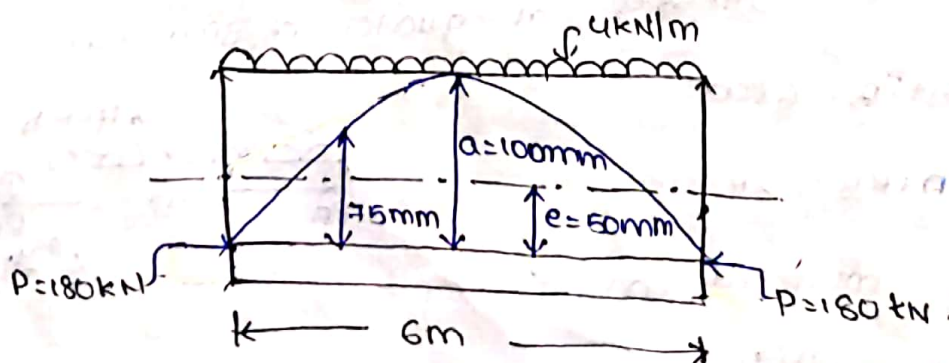 4kN/m
a=100mm
75mm
e=50mm
P=180kN
P=180kN.
6m